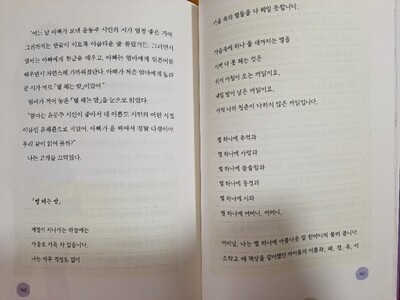 "어느 날 아빠가 보낸 윤동주 시인의 시가 엄청 좋은 거야.
그러면서
엄마는 아빠에게 한글을 배우고, 아빠는 엄마에게 일본어를
배우면서 자연스레 가까워졌단다. 아빠가 처음 엄마에게 들려
준 시가 바로 「별 헤는 밤」이었어."
엄마가 적어 놓은 「별 헤는 밤」을 눈으로 읽었다.
"엄마는 윤동주 시인이 좋아서 네 이름도 시인의 어린 시절
우리 같이 읽어 볼까?"
나는 고개를 끄덕였다.
「별 헤는 밤」
계절이 지나가는 하늘에는
가을로 가득 차 있습니다.
나는 아무 걱정도 없이
가을 속의 별들을 다 헤일 듯합니다.
가슴속에 하나 둘 새겨지는 별을
이제 다 못 헤는 것은
쉬이 아침이 오는 까닭이요,
내일 밤이 남은 까닭이요,
아직 나의 청춘이 다하지 않은 까닭입니다.
별 하나에 추억과
별 하나에 사랑과
별 하나에 쓸쓸함과
별 하나에 동경과
별 하나에 시와
별 하나에 어머니, 어머니,
어머님, 나는 별 하나에 아름다운 말 한마디씩 불러 봅니다.
소학교 때 책상을 같이했던 아이들의 이름과, 패, 경, 옥, 이